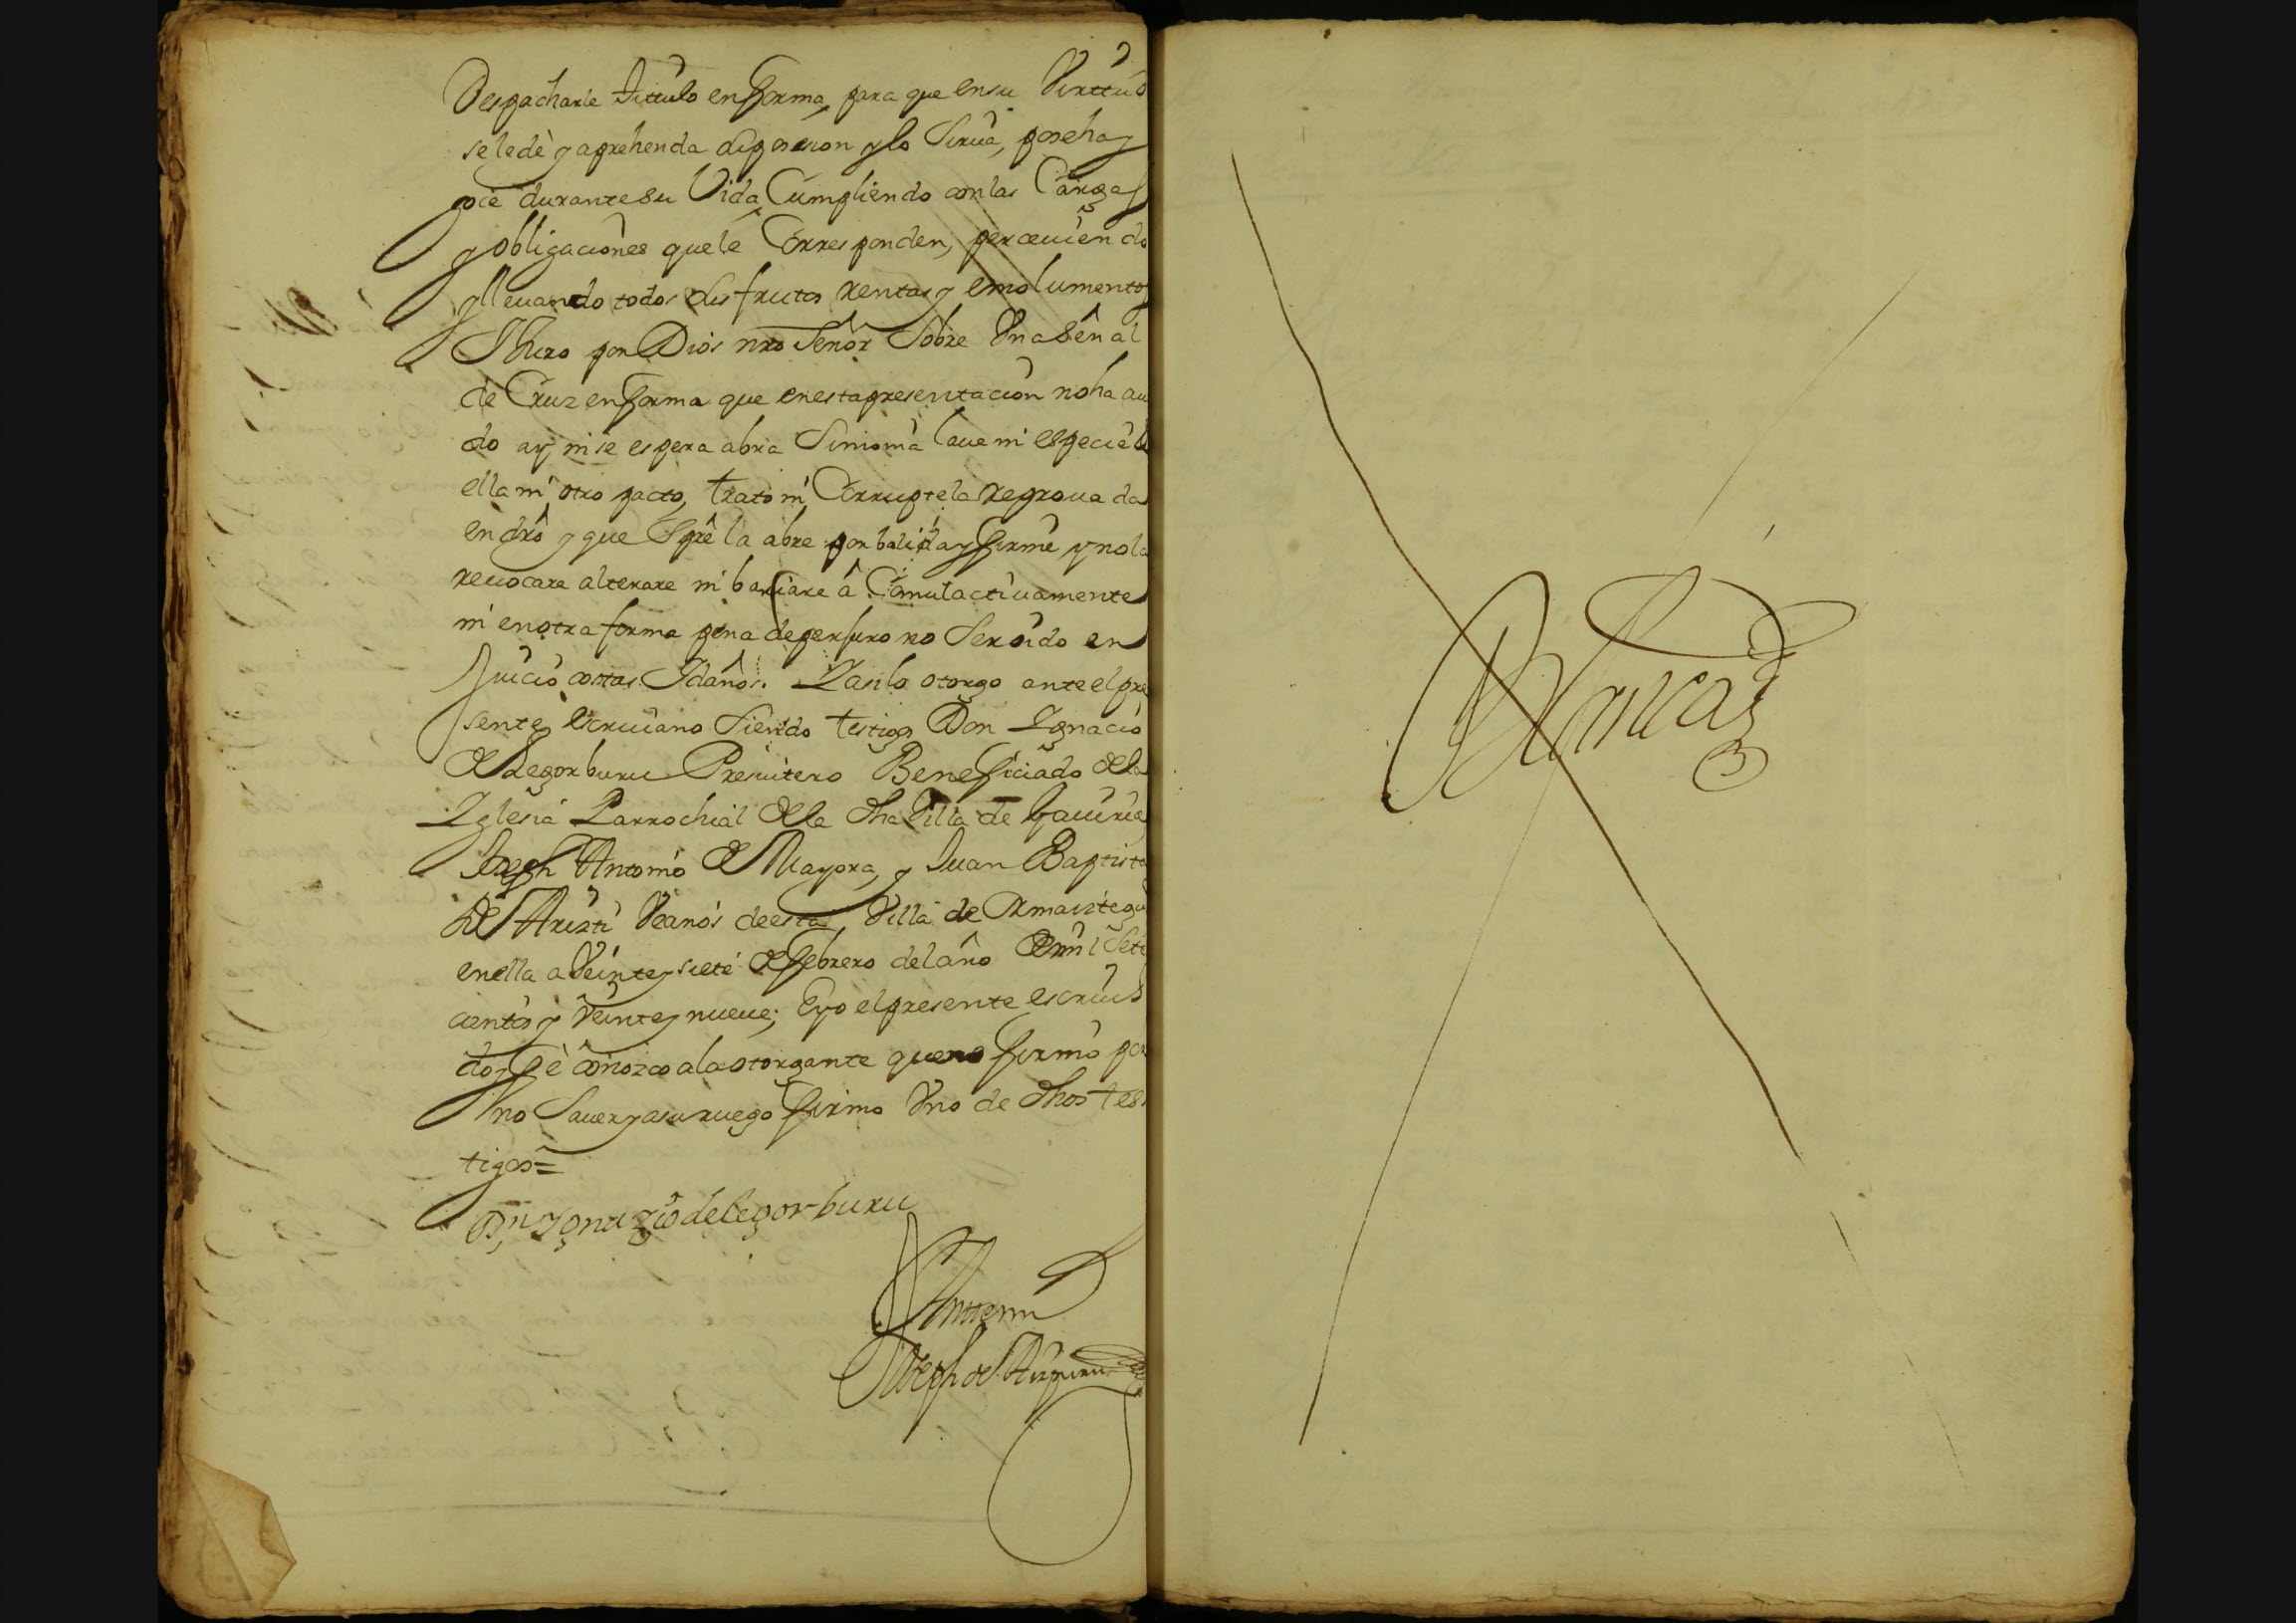 Despacharle tittulo en forma, para que en su Virttud
se le dè y aprehenda la posesion y lo Sirua, poseha y
goce durante su Vida Cumpliendo con las Cargas
y obligaciones que le Corresponden, perceuiendo
y lleuando todos sus frutos rentas y emolumentos
Y Juro por Dios nro Señor Sobre Una Señal
de Cruz en forma que en esta presentacion no ha aui
do ay ni se espera abra Simonia laue ni especie de
ella ni otro pacto, trato ni Corruptela reprouada
en dro y que Spre la abre por balida y firme y no la
reuocare alterare ni bariare â Comulactiuamente
ni en otra forma pena de perjuro no Ser oido en
Juicio costas Y daños. Y asi lo otorgo ante el pre
sente escriuano Siendo testigos Don Ygnacio
de Legorburu Presuitero Beneficiado de la
Yglesia Parrochial de la dha Villa de Gauiria
Joseph Antonio de Mayora, y Juan Baptista
de Aristi Veanos de esta Villa de Ormaiztegui
en ella a Veinte y siete de febrero del año de mil Sete
cientos y Veinte y nueue; E yo el presente escriu
doy feè conozco a la otorgante que no firmò por
no Sauer y a su ruego firmo Uno de dhos tes
tigos =
Dn Ygnazio de legorburu
Ante mi
Joseph de Aizpuru
Blancas